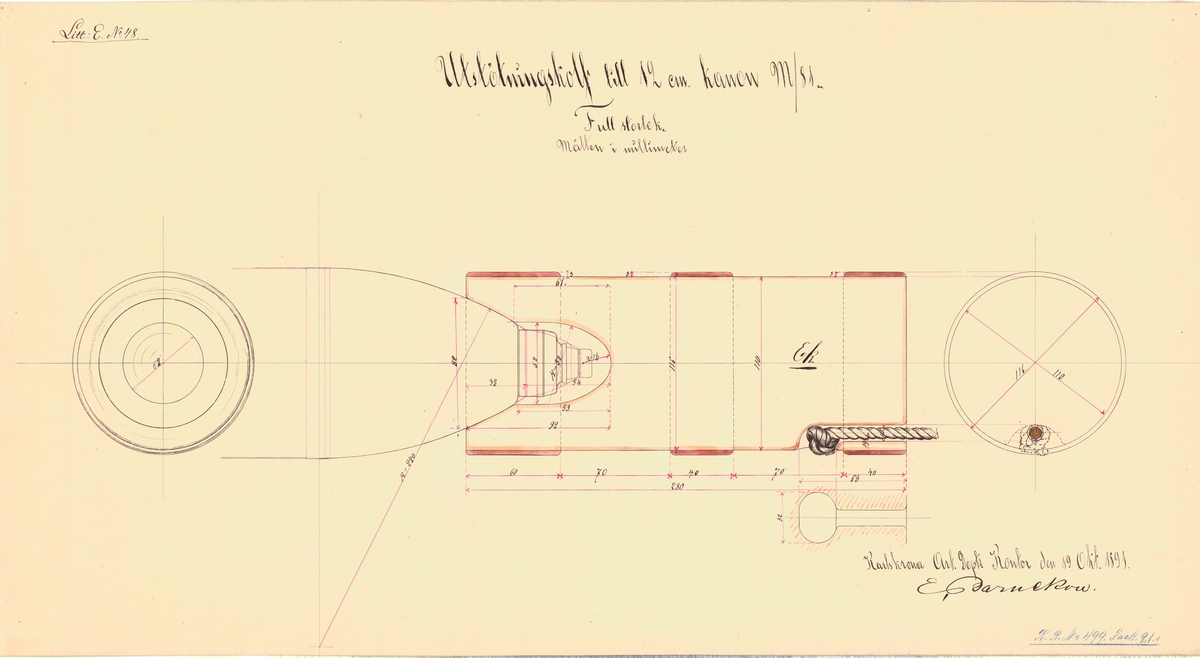 Litt: E. No 48.
Utstötningskolf till 12 cm. kanon M/81.
Full storlek.
Måtten i millimeter
67.
82
52
38
54.
53.
92
R=220
116
110
Ek
116
110
60
70
40
70
40
68
280
32
Karlskrona Art. Dept Kontor den 19 Okt. 1891.
K. R. No 499. Pack. 91.